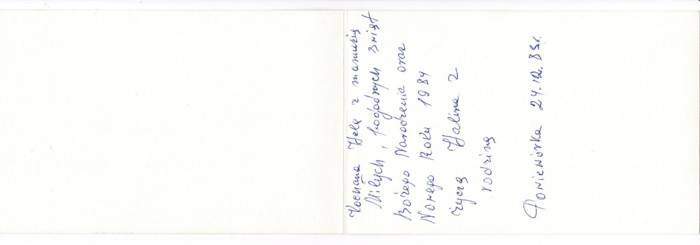 Kochana Helę z mamusią
Miłych, pogodnych Świąt
Bożego Narodzenia oraz
Nowego Roku 1984
życzą Halina z
rodziną
24.12.83r.